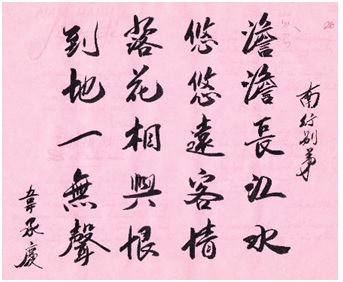 南行別弟
澹澹長江水
悠悠遠客情
落花相與恨
到地一無聲
韋承慶